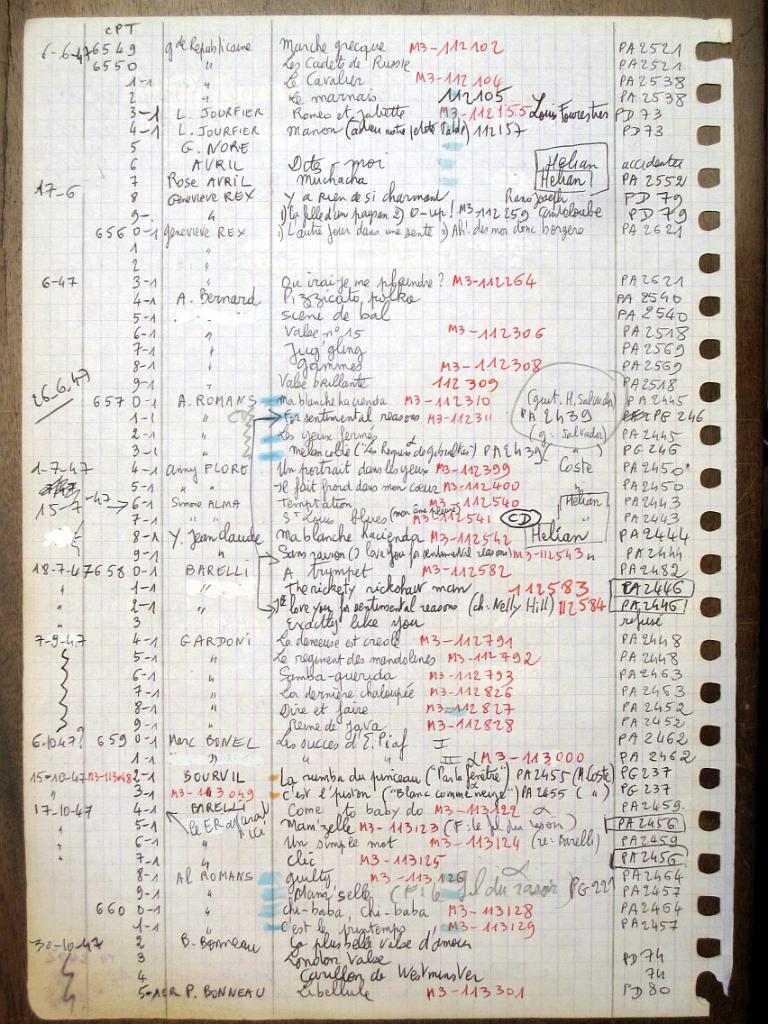 CPT
6-6-47 6549 gde Républicaine Marche grecque M3-112102 PA2521
6550 " Les Cadets de Russie PA2521
1-1 " Le Cavalier M3-112104 PA2538
2 " Le marnais 112105 PA2538
3-1 L. JOURFIER Romeo et Juliette M3-112155 Louis Fourestier PD73
4-1 L. JOURFIER Manon (adieu notre petite table) 112157 PD73
5 G. NORE
6 AVRIL Dites-moi Helian accidentée
7 Rose AVRIL Muchacha Helian PA 2552
17-6 8 Genevieve REX Y a rien de si charmant PD 79
9- " 1) la fille d'un paysan 2) O-up! M3-112259 Canteloube PD 79
656 0-1 Genevieve REX 1) L'autre jour dans une sente 2) Ah! dis moi donc bergere PA 2621
1 "
2 "
6-47 3-1 Ou irai-je me plaindre? M3-112264 PA2621
4-1 A. Bernard Pizzicato, polka PA 2540
5-1 scene de bal PA 2540
6-1 " Valse n° 15 M3-112306 PA2518
7-1 " Jug'gling PA2569
8-1 " Gammes M3-112308 PA2569
9-1 " Valse brillante 112309 PA2518
26.6.47 657 0-1 A. ROMANS Ma blanche hacienda M3-112310 (guit. H. Salvador) PA2445
1-1 " For sentimental reasons M3-112311 PA 2439 PG 246
2-1 " Les yeux fermés (g. Salvador) PA2445
3-1 " melancolie ("Les Requins de Gibraltar") PA2439 ( " ) PG246
1-7-47 4-1 anny FLORE Un portrait dans les yeux M3-112399 Coste PA2450
5-1 " " Il fait froid dans mon coeur M3-112400 PA2450
15-7-47 6-1 Simone ALMA Temptation M3-112540 Helian PA2443
7-1 " St Louis blues M3-112541 CD " PA2443
8-1 Y. Jean Claude Ma blanche hacienda M3-112542 Helian PA2444
9-1 " Sans raison (I love you for sentimental reasons) M3-112543 " PA2444
18-7-47 658 0-1 BARELLI A trumpet M3-112582 PA2482
" 1-1 " The rickety rickshaw man 112583 PA2446
" 2-1 " I love you for sentimental reasons (ch. Nelly Hill) 112584 PA2446
" 3 Exactly like you refusé
7-9-47 4-1 GARDONI La danseuse est creole M3-112791 PA2448
5-1 " Le regiment des mandolines M3-112792 PA2448
6-1 " Samba-querida M3-112793 PA2463
7-1 " La derniere chaloupée M3-112826 PA2463
8-1 " Dire et faire M3-112827 PA2452
9-1 " Reine de java M3-112828 PA2452
6.10.47? 659 0-1 Marc BONEL Les succes d'E. Piaf I PA2462
1-1 " " " II M3-113000 PA 2462
15-10-47 M3-113048 2-1 BOURVIL La rumba du pinceau ("Par la fenêtre") PA2455 (M. Coste) PG237
3-1 M3-113049 C'est l'piston ("Blanc comme neige") PA2455 ( " ) PG237
17-10-47 4-1 BARELLI Come to baby do M3-113122 PA2459
" 5-1 le ER apparait ici Mam'zelle M3-113123 (F: le fil du rasoir) PA2456
" 6-1 Un simple mot M3-113124 (re: Barelli) PA2459
" 7-1 " Clic M3-113125 PA2456
8-1 Al ROMANS guilty M3-113126 PA2464
9-1 " Mam'selle (F: le fil du rasoir) PG-221 PA2457
660 0-1 " chi-baba, chi-baba M3-113128 PA2464
1-1 " C'est le printemps M3-113129 PA2457
30-10-47 2 B. Bonneau La plus belle valse d'amour
3 London Valse PD74
4 Carillon de Westminster 74
5-1 ER P. BONNEAU Libellule M3-113301 PD80